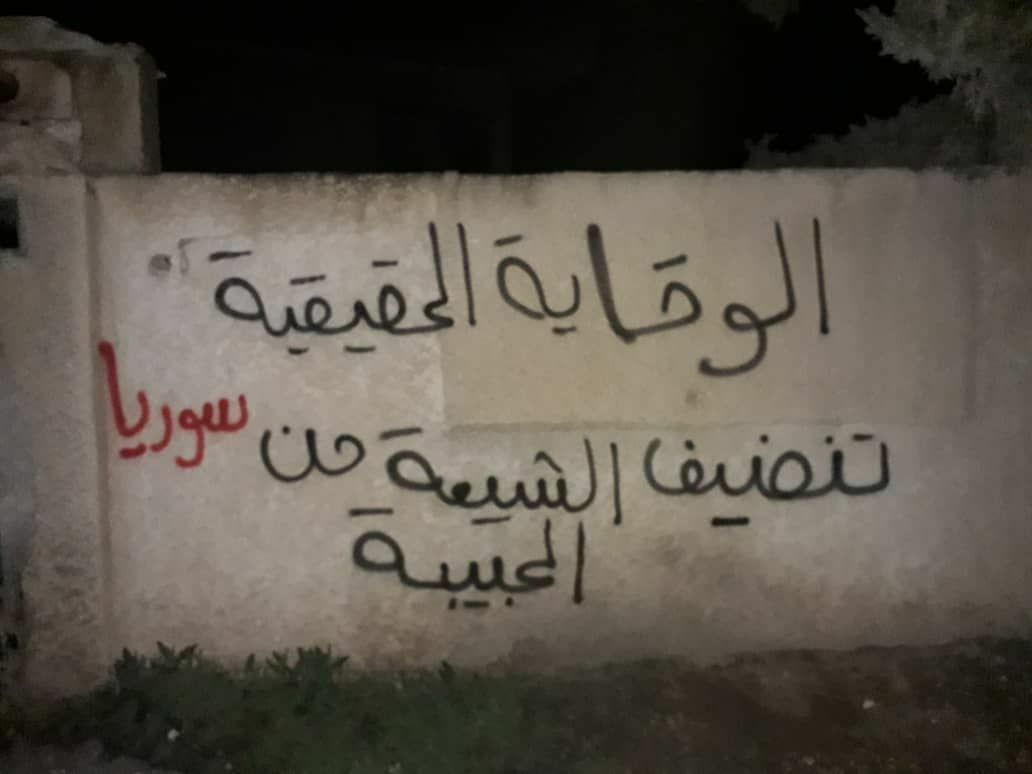 الوقاية الحقيقية
تنضيف الشيعة من سوريا
الحبيبة